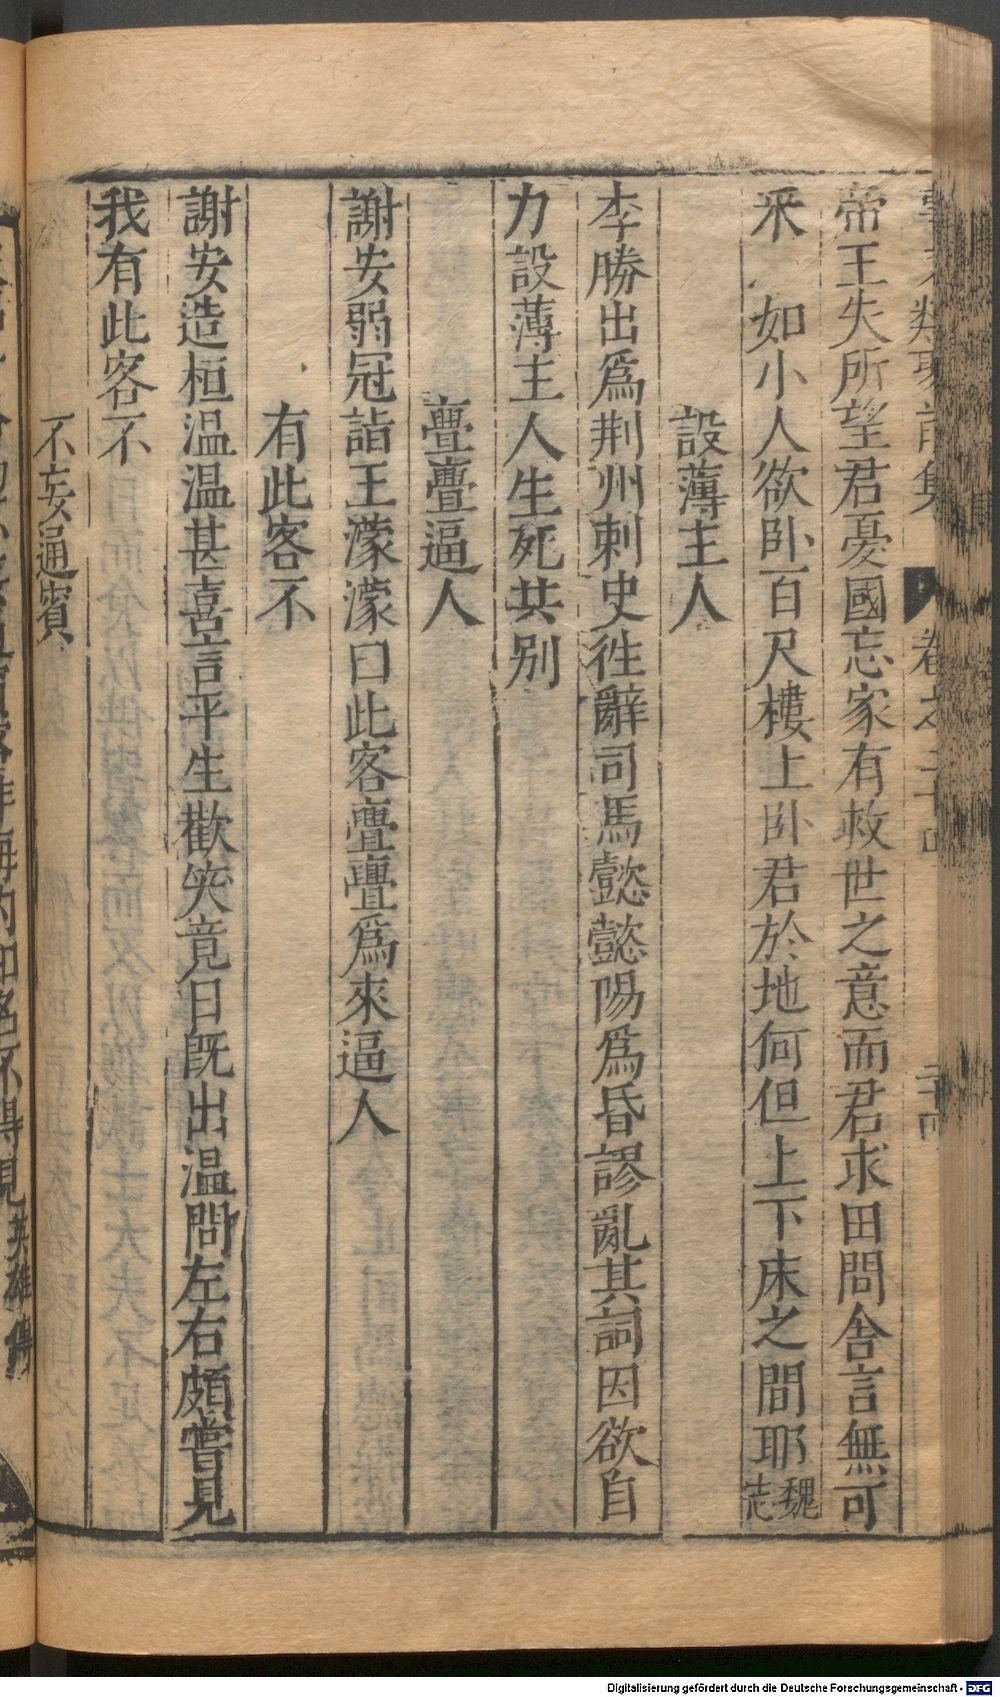 帝王失所望君憂國忘家有救世之意而君求田問舍言無可
采如小人欲卧百尺樓上卧君於地何但上下床之間耶魏志
設薄主人
李勝出爲荆州刺史徃辭司馬懿懿陽爲昏謬亂其詞因欲自
力設薄主人生死共别
亹亹逼人
謝安弱冠詣王濛濛曰此客亹亹爲來逼人
有此客不
謝安造桓温温甚喜言平生歡笑竟日旣出温問左右頗嘗見
我有此客不
不妄通賓
英雄傳
Digitalisierung gefördert durch die Deutsche Forschungsgemeinschaft - DFG